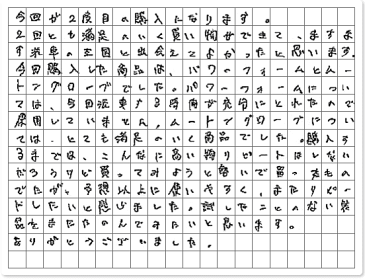 今回が2度目の購入になります。
2回とも満足のいく買い物ができて、ますま
す米卓の王国と出会えてよかったと思います。
今回購入した商品は、パワーフォームとムー
トングローブでした。パワーフォームについ
ては、今回洗車する時間が充分にとれたので
使用していませんん、ムートングローブについ
ては、とても満足のいく商品でした。購入す
るまでは、こんなに高い物リピートはしない
だろうけど買ってみようと台いで買ったもの
でしたが、予想以上に使いやすく、またリピー
トしたいと感じました。試したことのない製
品をまたためしてみたいと思います。
ありがとうございました。